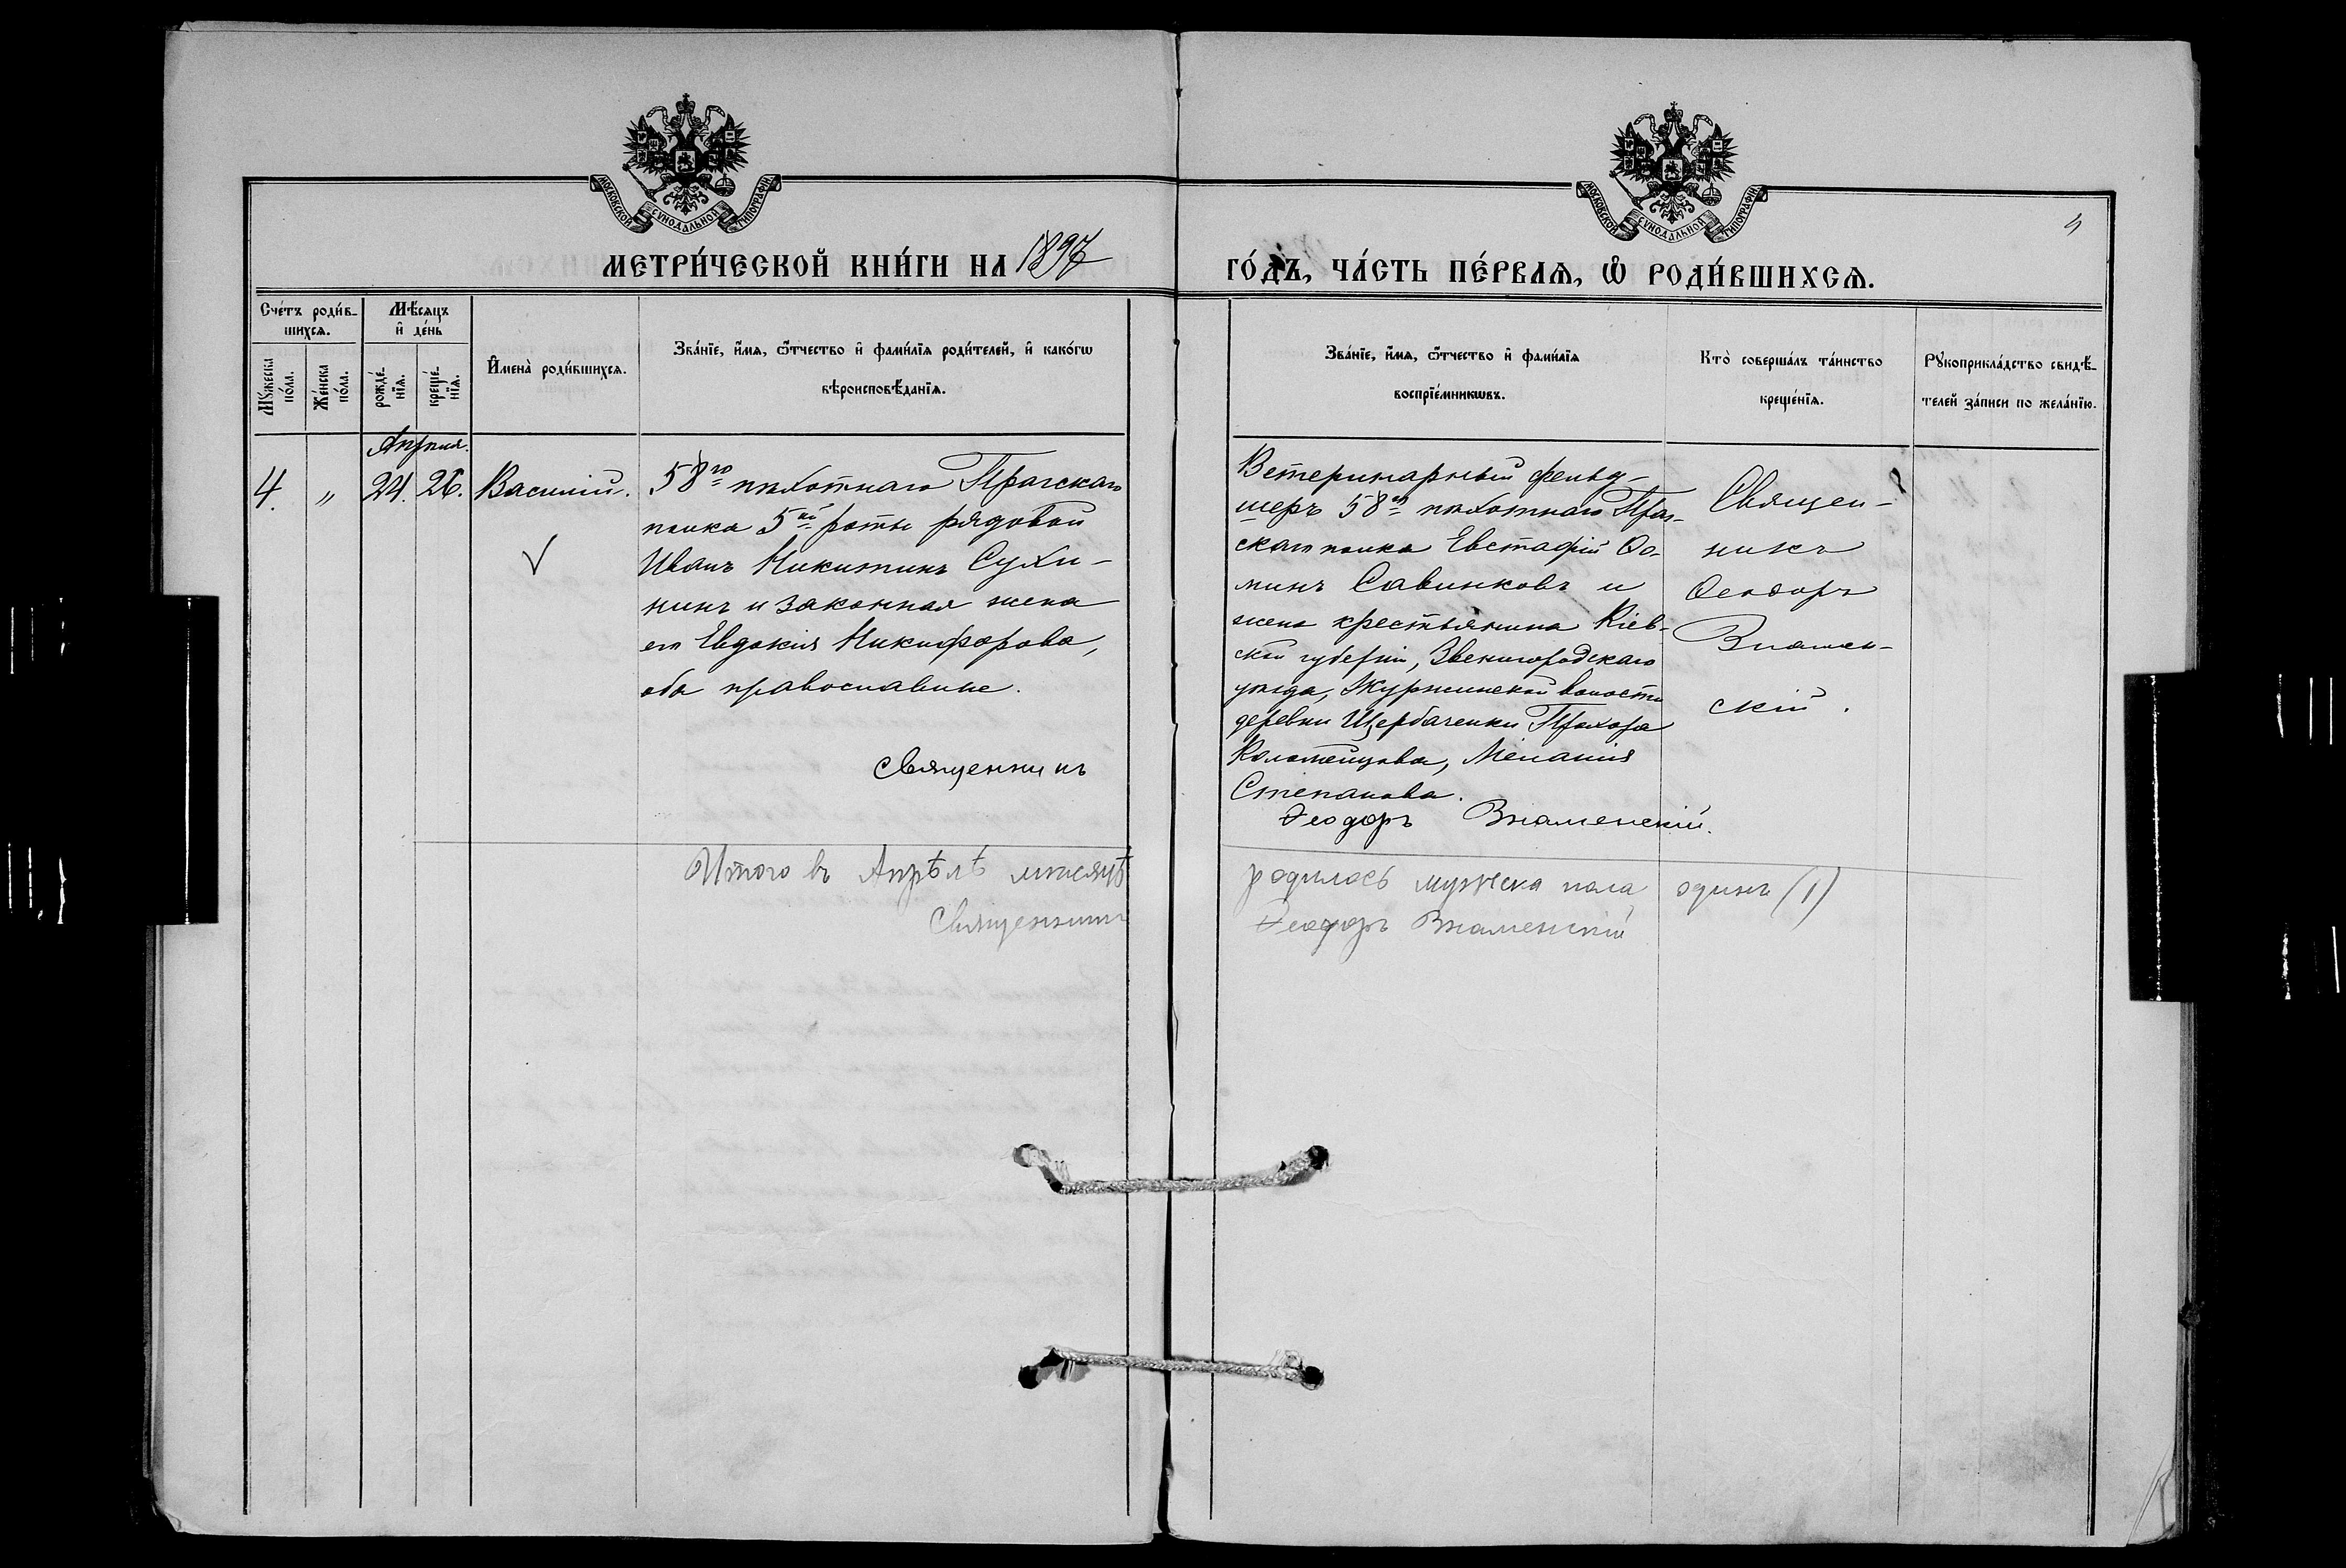 МОСКОВСКОЙ СѴНОДАЛЬНОЙ ТИПОГРАФІИ
МОСКОВСКОЙ СѴНОДАЛЬНОЙ ТИПОГРАФІИ
МЕТРИ́ЧЕСКОЙ КНИ́ГИ НА 1897
ГО́ДЪ, ЧА́СТЬ ПЕ́РВАѦ, Ѽ РОДИ́ВШИХСѦ.
Сче́тъ роди́в-
шихсѧ.
Мѣ́сяцъ
и҆ де́нь
Мꙋ́жеска
по́ла.
Же́нска
по́ла.
рожде́-
нїѧ.
креще́-
нїѧ.
И҆мена̀ роди́вшихсѧ.
Зва́нїе, и҆́мѧ, ѻ҆́тчество и҆ фами́лїѧ роди́телей, и҆ како́гѡ
вѣроисповѣ́данїѧ.
Зва́нїе, и҆́мѧ, ѻ҆́тчество и҆ фами́лїѧ
воспрїе́мникѡвъ.
Кто̀ соверша́лъ та́инство
креще́нїѧ.
Рꙋкоприкла́дство свидѣ́-
телей за́писи по жела́нїю.
Апрѣля.
4. " 24. 26. Василій.
58го пѣхотнаго Пражскаго
полка 5ой роты рядовой
Иванъ Никитинъ Сухи-
нинъ и законная жена
его Евдокія Никифорова,
оба православные.
Священникъ
Ветеринарный фельд-
шеръ 58го пѣхотнаго Праж-
скаго полка Евстафій Ѳо-
минъ Савинковъ и
жена крестьянина Кіев-
ской губерніи, Звенигородскаго
уѣзда, Журжинской волости
деревни Щербаченки Прохора
Коломейцова, Меланія
Степанова.
Ѳеодоръ Знаменскій.
Священ-
никъ
Ѳеодоръ
Знамен-
скій.
Итого въ Апрѣлѣ мѣсяцѣ
родилось мужеска пола одинъ (1)
Священникъ
Ѳеодоръ Знаменскій